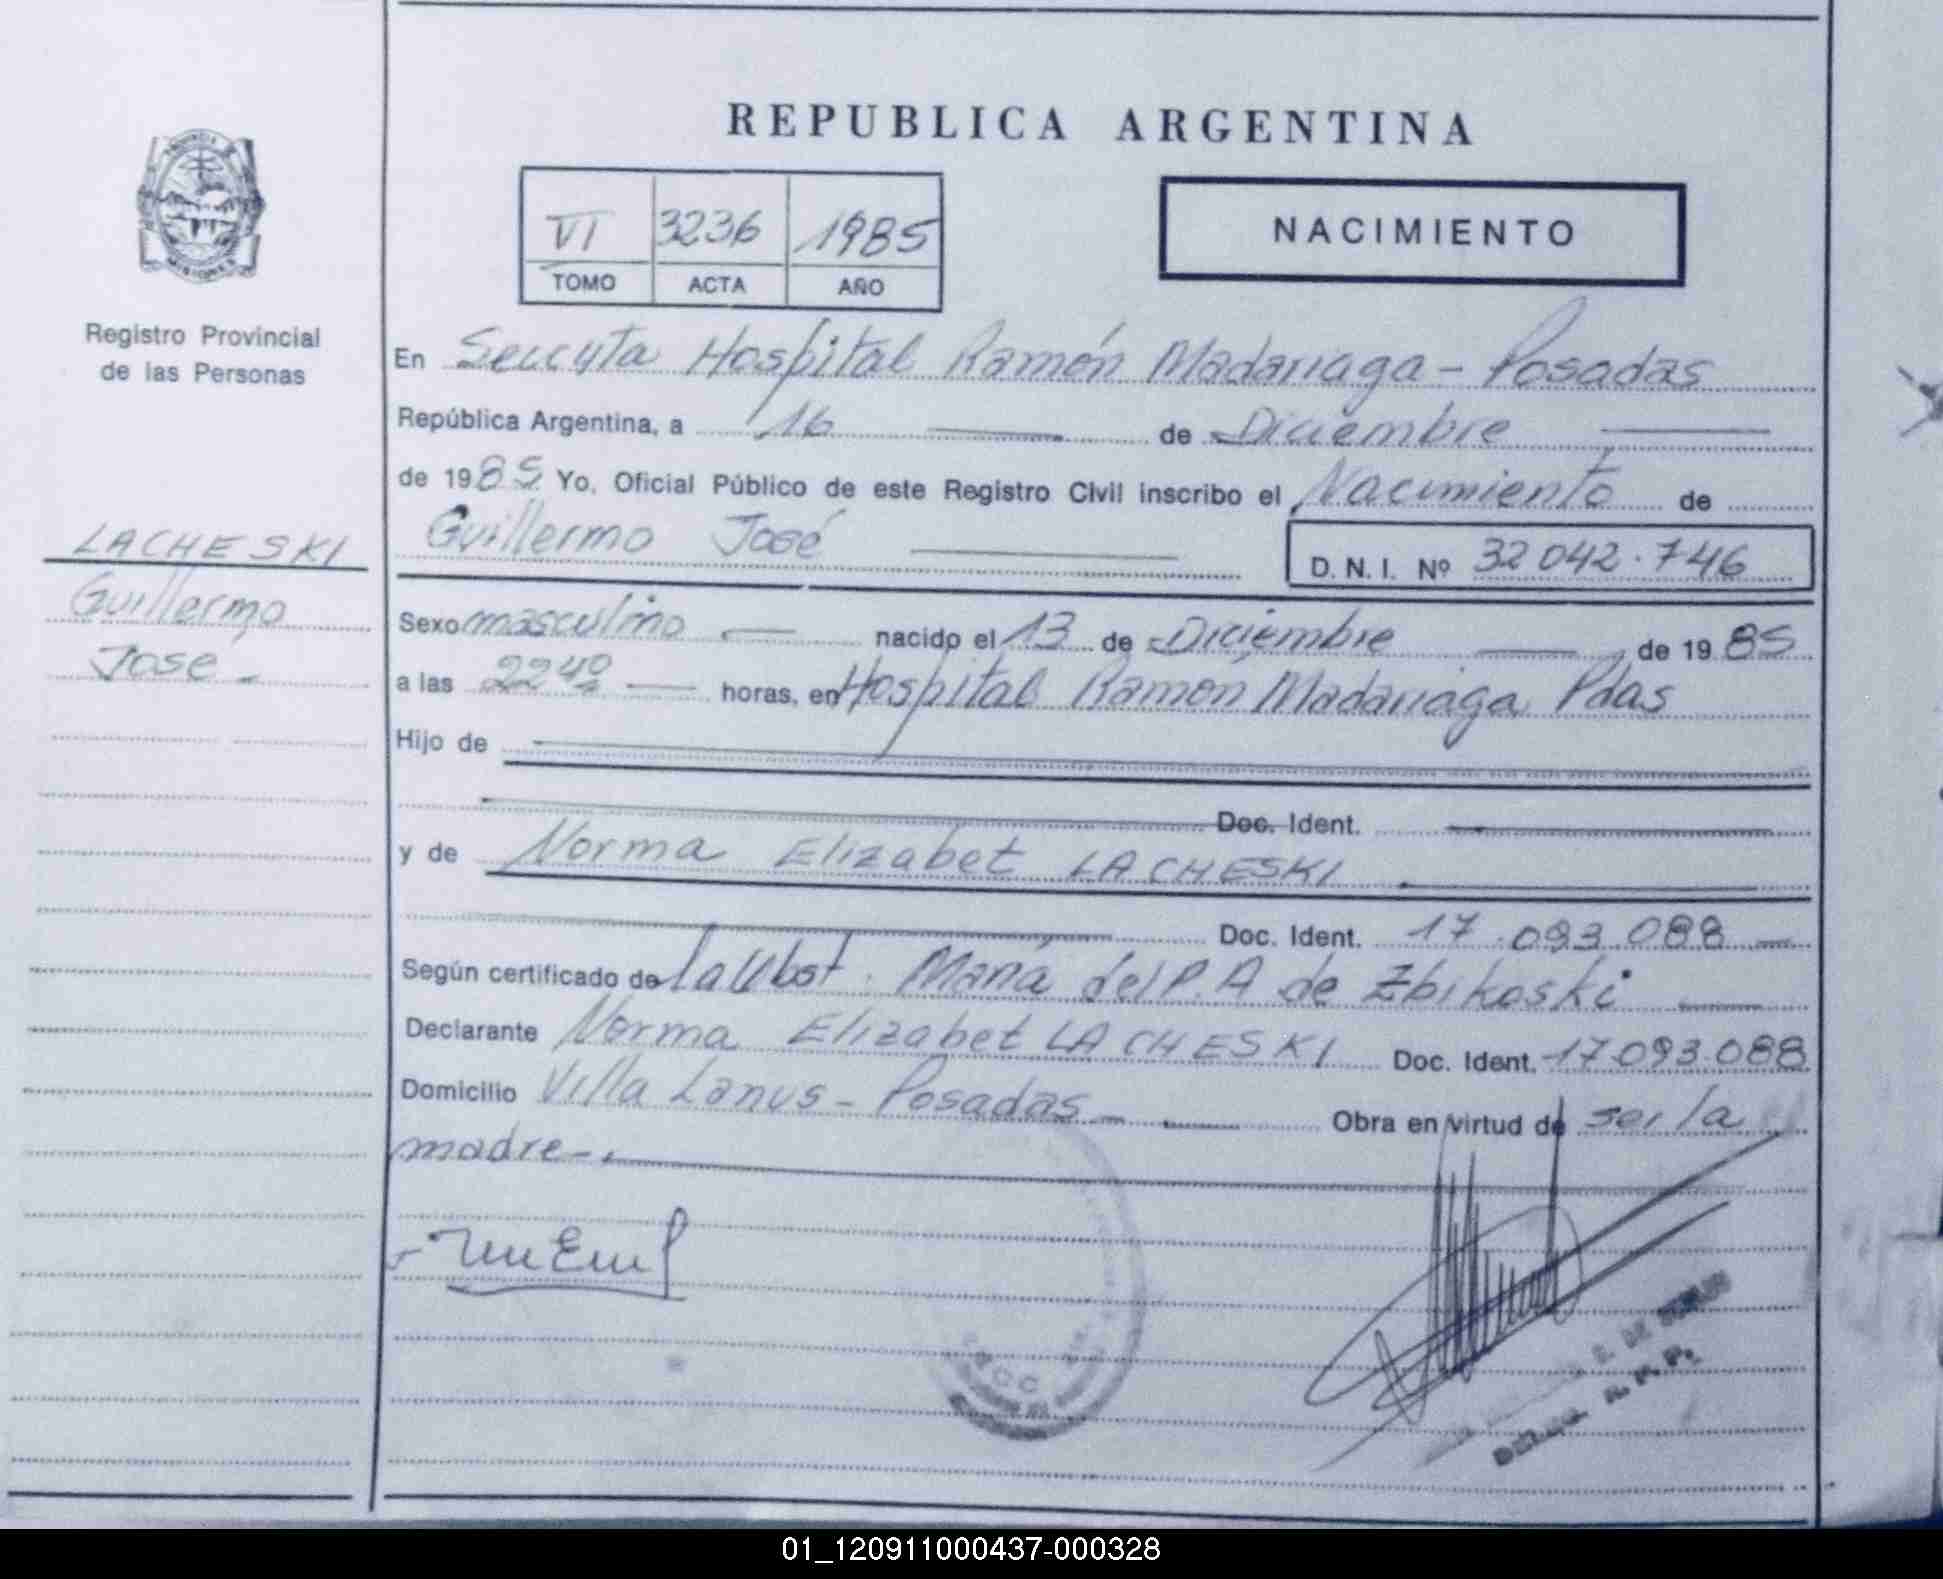 REPUBLICA ARGENTINA
PROVINCIA
MISIONES
Registro Provincial
de las Personas
VI 3236 1985
TOMO ACTA AÑO
NACIMIENTO
En Seccyta Hospital Ramón Madariaga - Posadas
República Argentina, a 16 de Diciembre
de 1985 Yo, Oficial Público de este Registro Civil inscribo el Nacimiento de
Guillermo José
D. N. I. Nº 32 042.746
LACHESKI
Guillermo
José -
Sexo masculino nacido el 13 de Diciembre de 1985
a las 2240 horas, en Hospital Ramón Madariaga Pdas
Hijo de
Doc. Ident.
y de Norma Elizabet LACHESKI
Doc. Ident. 17.093.088
Según certificado de María del P. A de Zbikoski
Declarante Norma Elizabet LACHESKI Doc. Ident. 17.093.088
Domicilio Villa Lanus - Posadas - Obra en virtud de ser la
madre -.
01_120911000437-000328